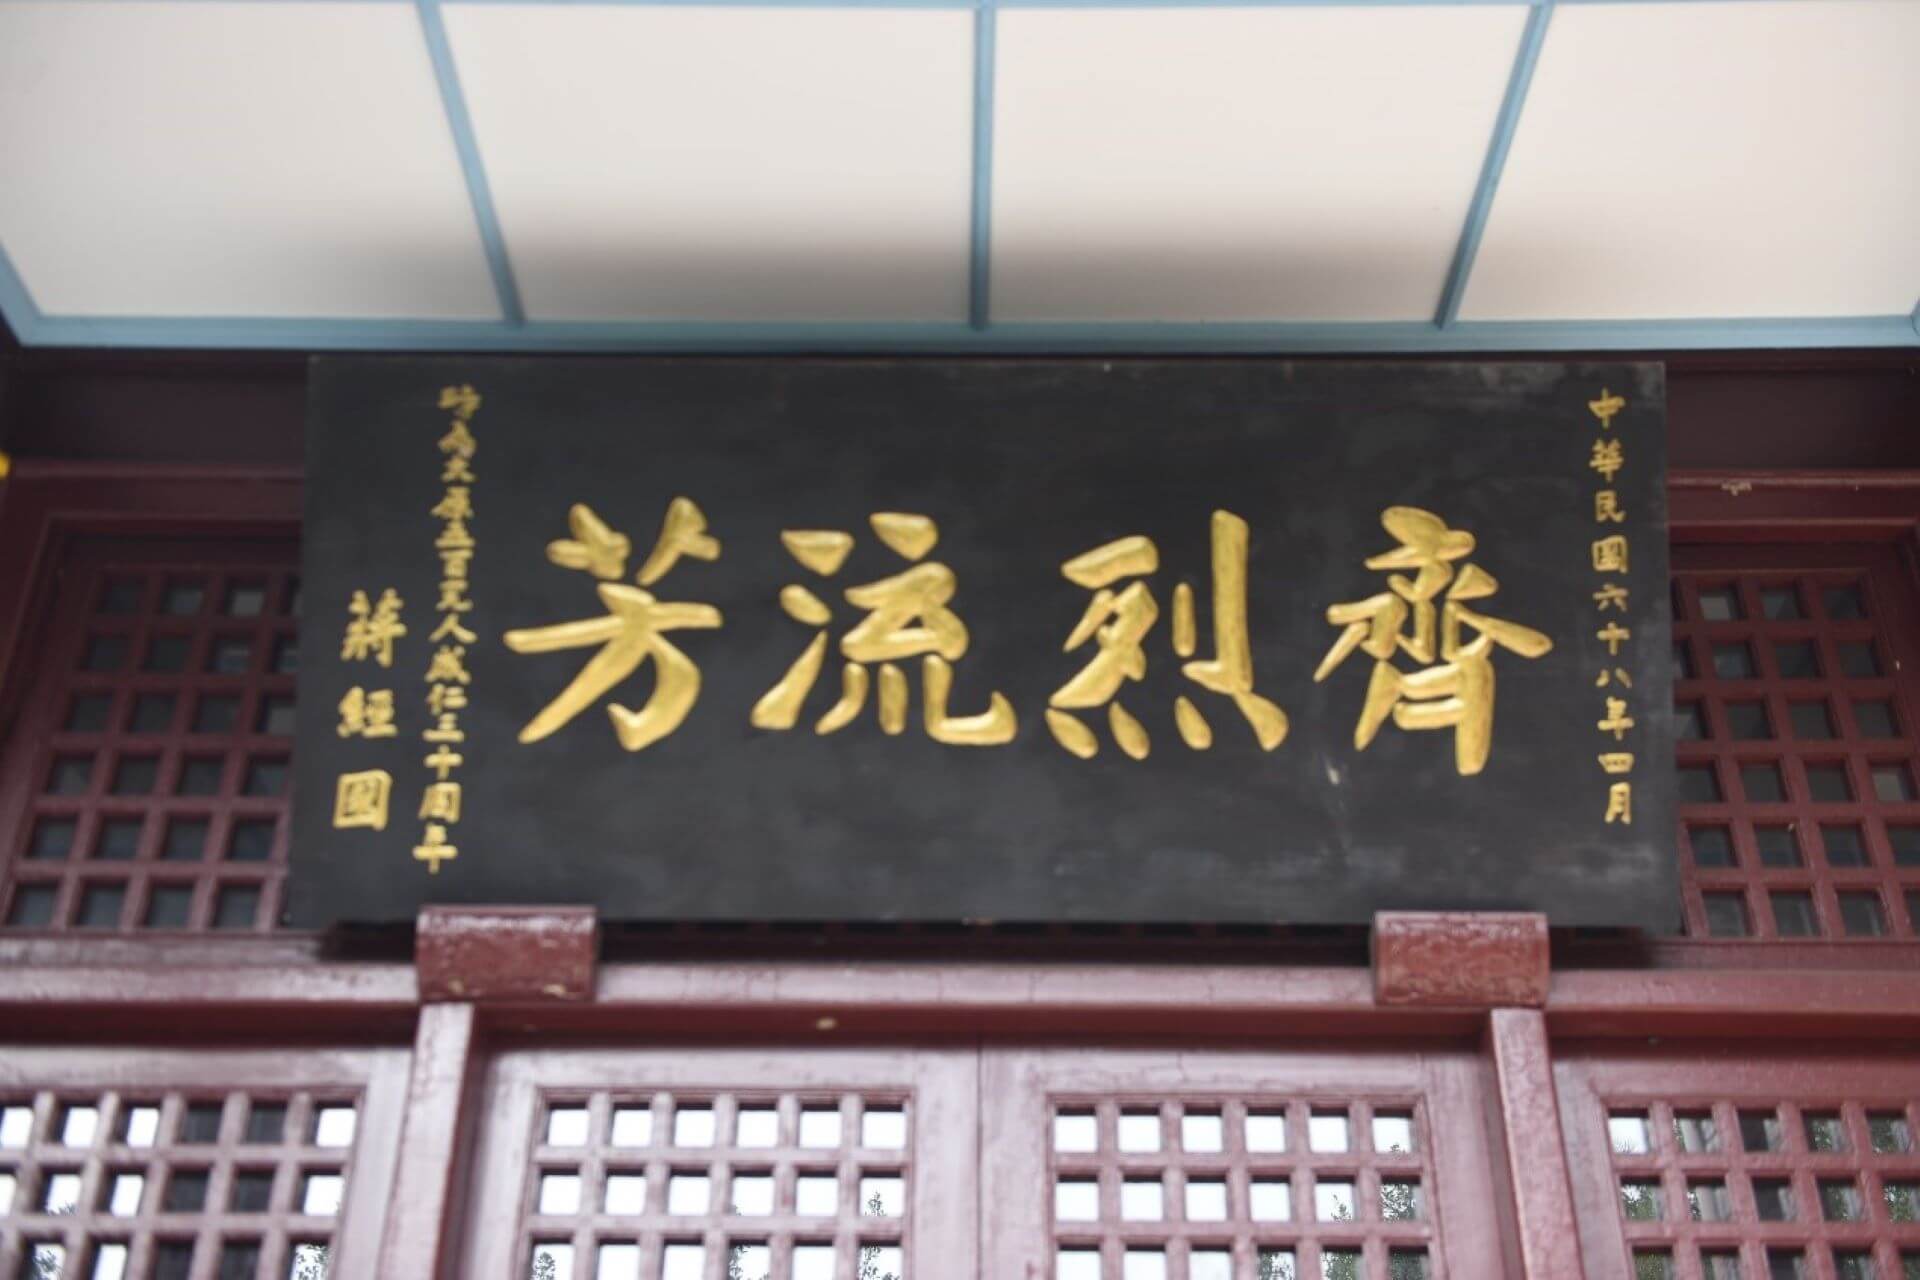 中華民國六十八年四月
齊烈流芳
時為太原五百完人成仁三十周年
蔣經國